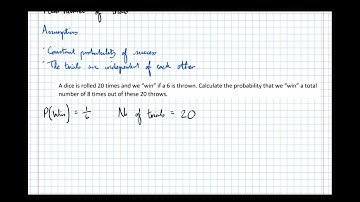 Fixed number of trials
Assumptions
· Constant probability of success
· The trials are independent of each other
A dice is rolled 20 times and we "win" if a 6 is thrown. Calculate the probability that we "win" a total
number of 8 times out of these 20 throws.
P(Win) = 1/6 No of trials = 20